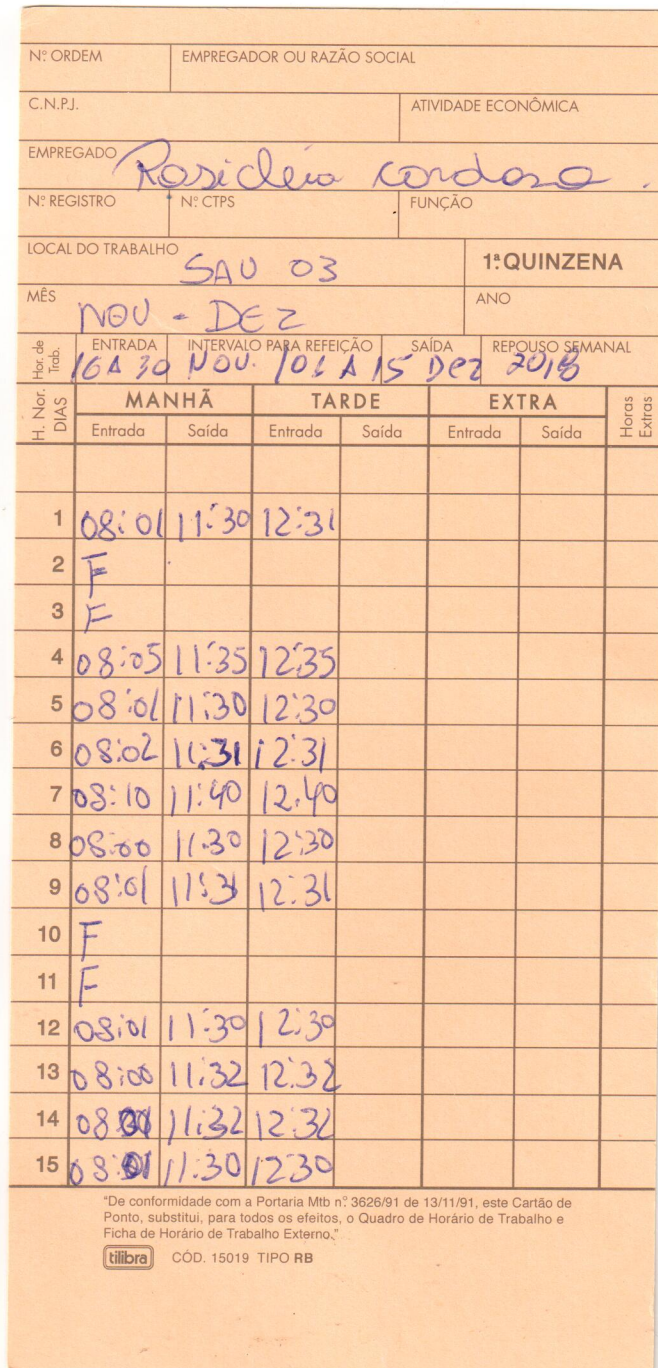 Nº ORDEM EMPREGADOR OU RAZÃO SOCIAL
C.N.P.J. ATIVIDADE ECONÔMICA
EMPREGADO Rosicleia cardoso.
Nº REGISTRO Nº CTPS FUNÇÃO
LOCAL DO TRABALHO SAU 03 1ª QUINZENA
MÊS NOV - DEZ ANO
Hor. de Trab. ENTRADA INTERVALO PARA REFEIÇÃO SAÍDA REPOUSO SEMANAL
16 A 30 NOV. /01 A 15 DEZ 2018
H. Nor. DIAS MANHÃ TARDE EXTRA Horas Extras
Entrada Saída Entrada Saída Entrada Saída
1 08:01 11:30 12:31
2 F
3 F
4 08:05 11:35 12:35
5 08:01 11:30 12:30
6 08:02 11:31 12:31
7 08:10 11:40 12:40
8 08:00 11:30 12:30
9 08:01 11:31 12:31
10 F
11 F
12 08:01 11:30 12:30
13 08:00 11:32 12:32
14 11:32 12:32
15 08:01 11:30 12:30
"De conformidade com a Portaria Mtb n.º 3626/91 de 13/11/91, este Cartão de
Ponto, substitui, para todos os efeitos, o Quadro de Horário de Trabalho e
Ficha de Horário de Trabalho Externo."
tilibra CÓD. 15019 TIPO RB